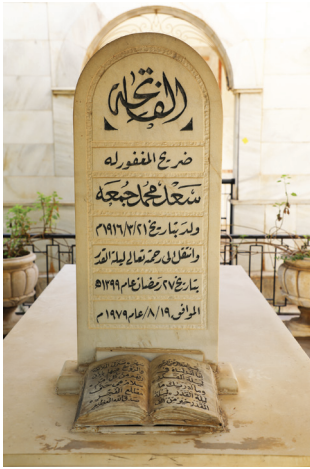 الفاتحة
ضريح المغفور له
سعد محمد جمعه
ولد بتاريخ ١٩١٦/٣/٢١م
وانتقل الى رحمة تعالى ليلة القدر
بتاريخ ٢٧ رمضان عام ١٣٩٩ه
الموافق ١٩/٨/ عام ١٩٧٩م